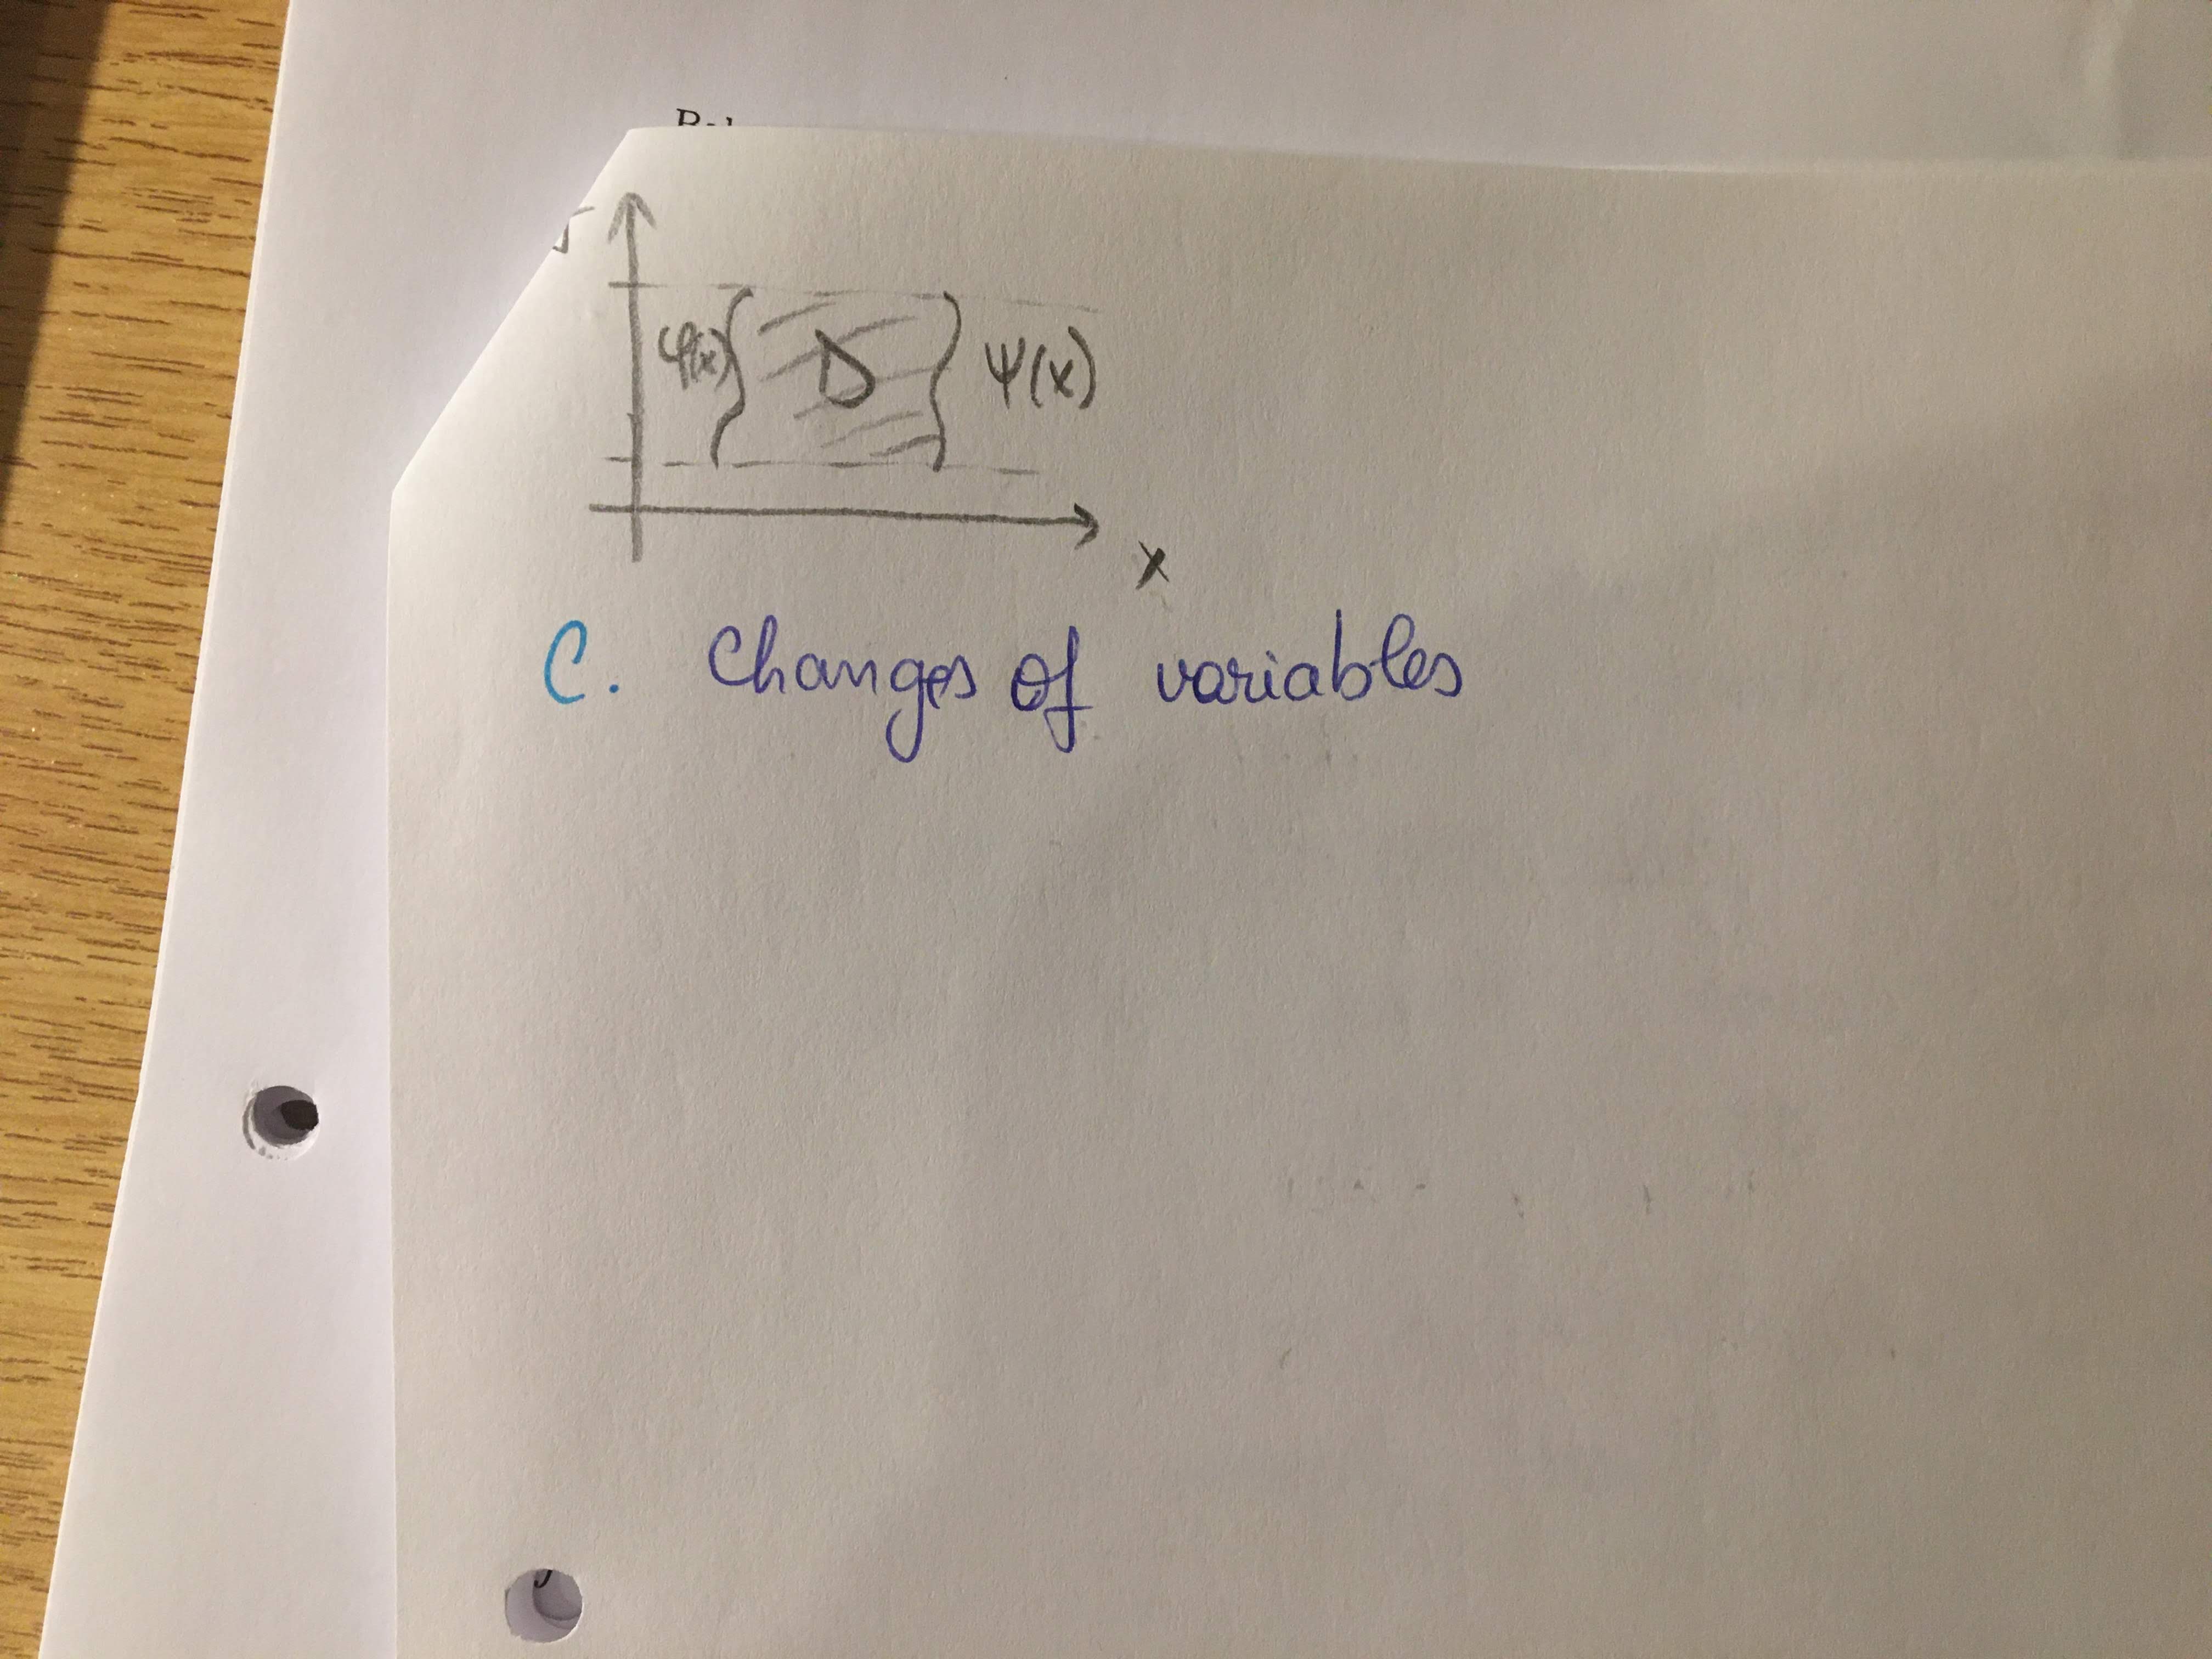 φ(x)
D
ψ(x)
x
C. Changes of variables